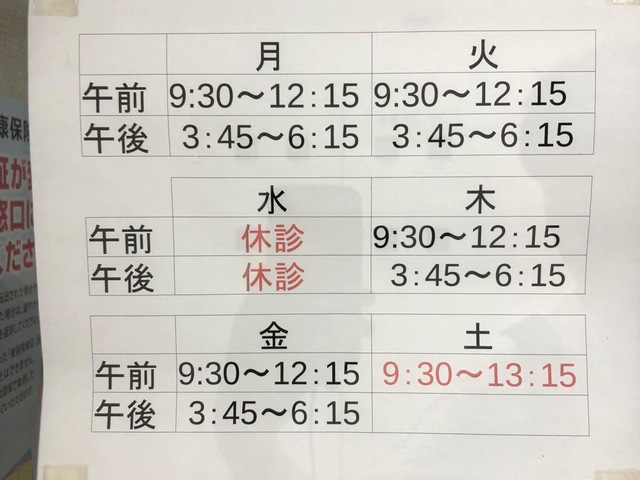 月 火
午前 9:30～12:15 9:30～12:15
午後 3:45～6:15 3:45～6:15
水 木
午前 休診 9:30～12:15
午後 休診 3:45～6:15
金 土
午前 9:30～12:15 9:30～13:15
午後 3:45～6:15
康保険
証が
窓口に
ださ